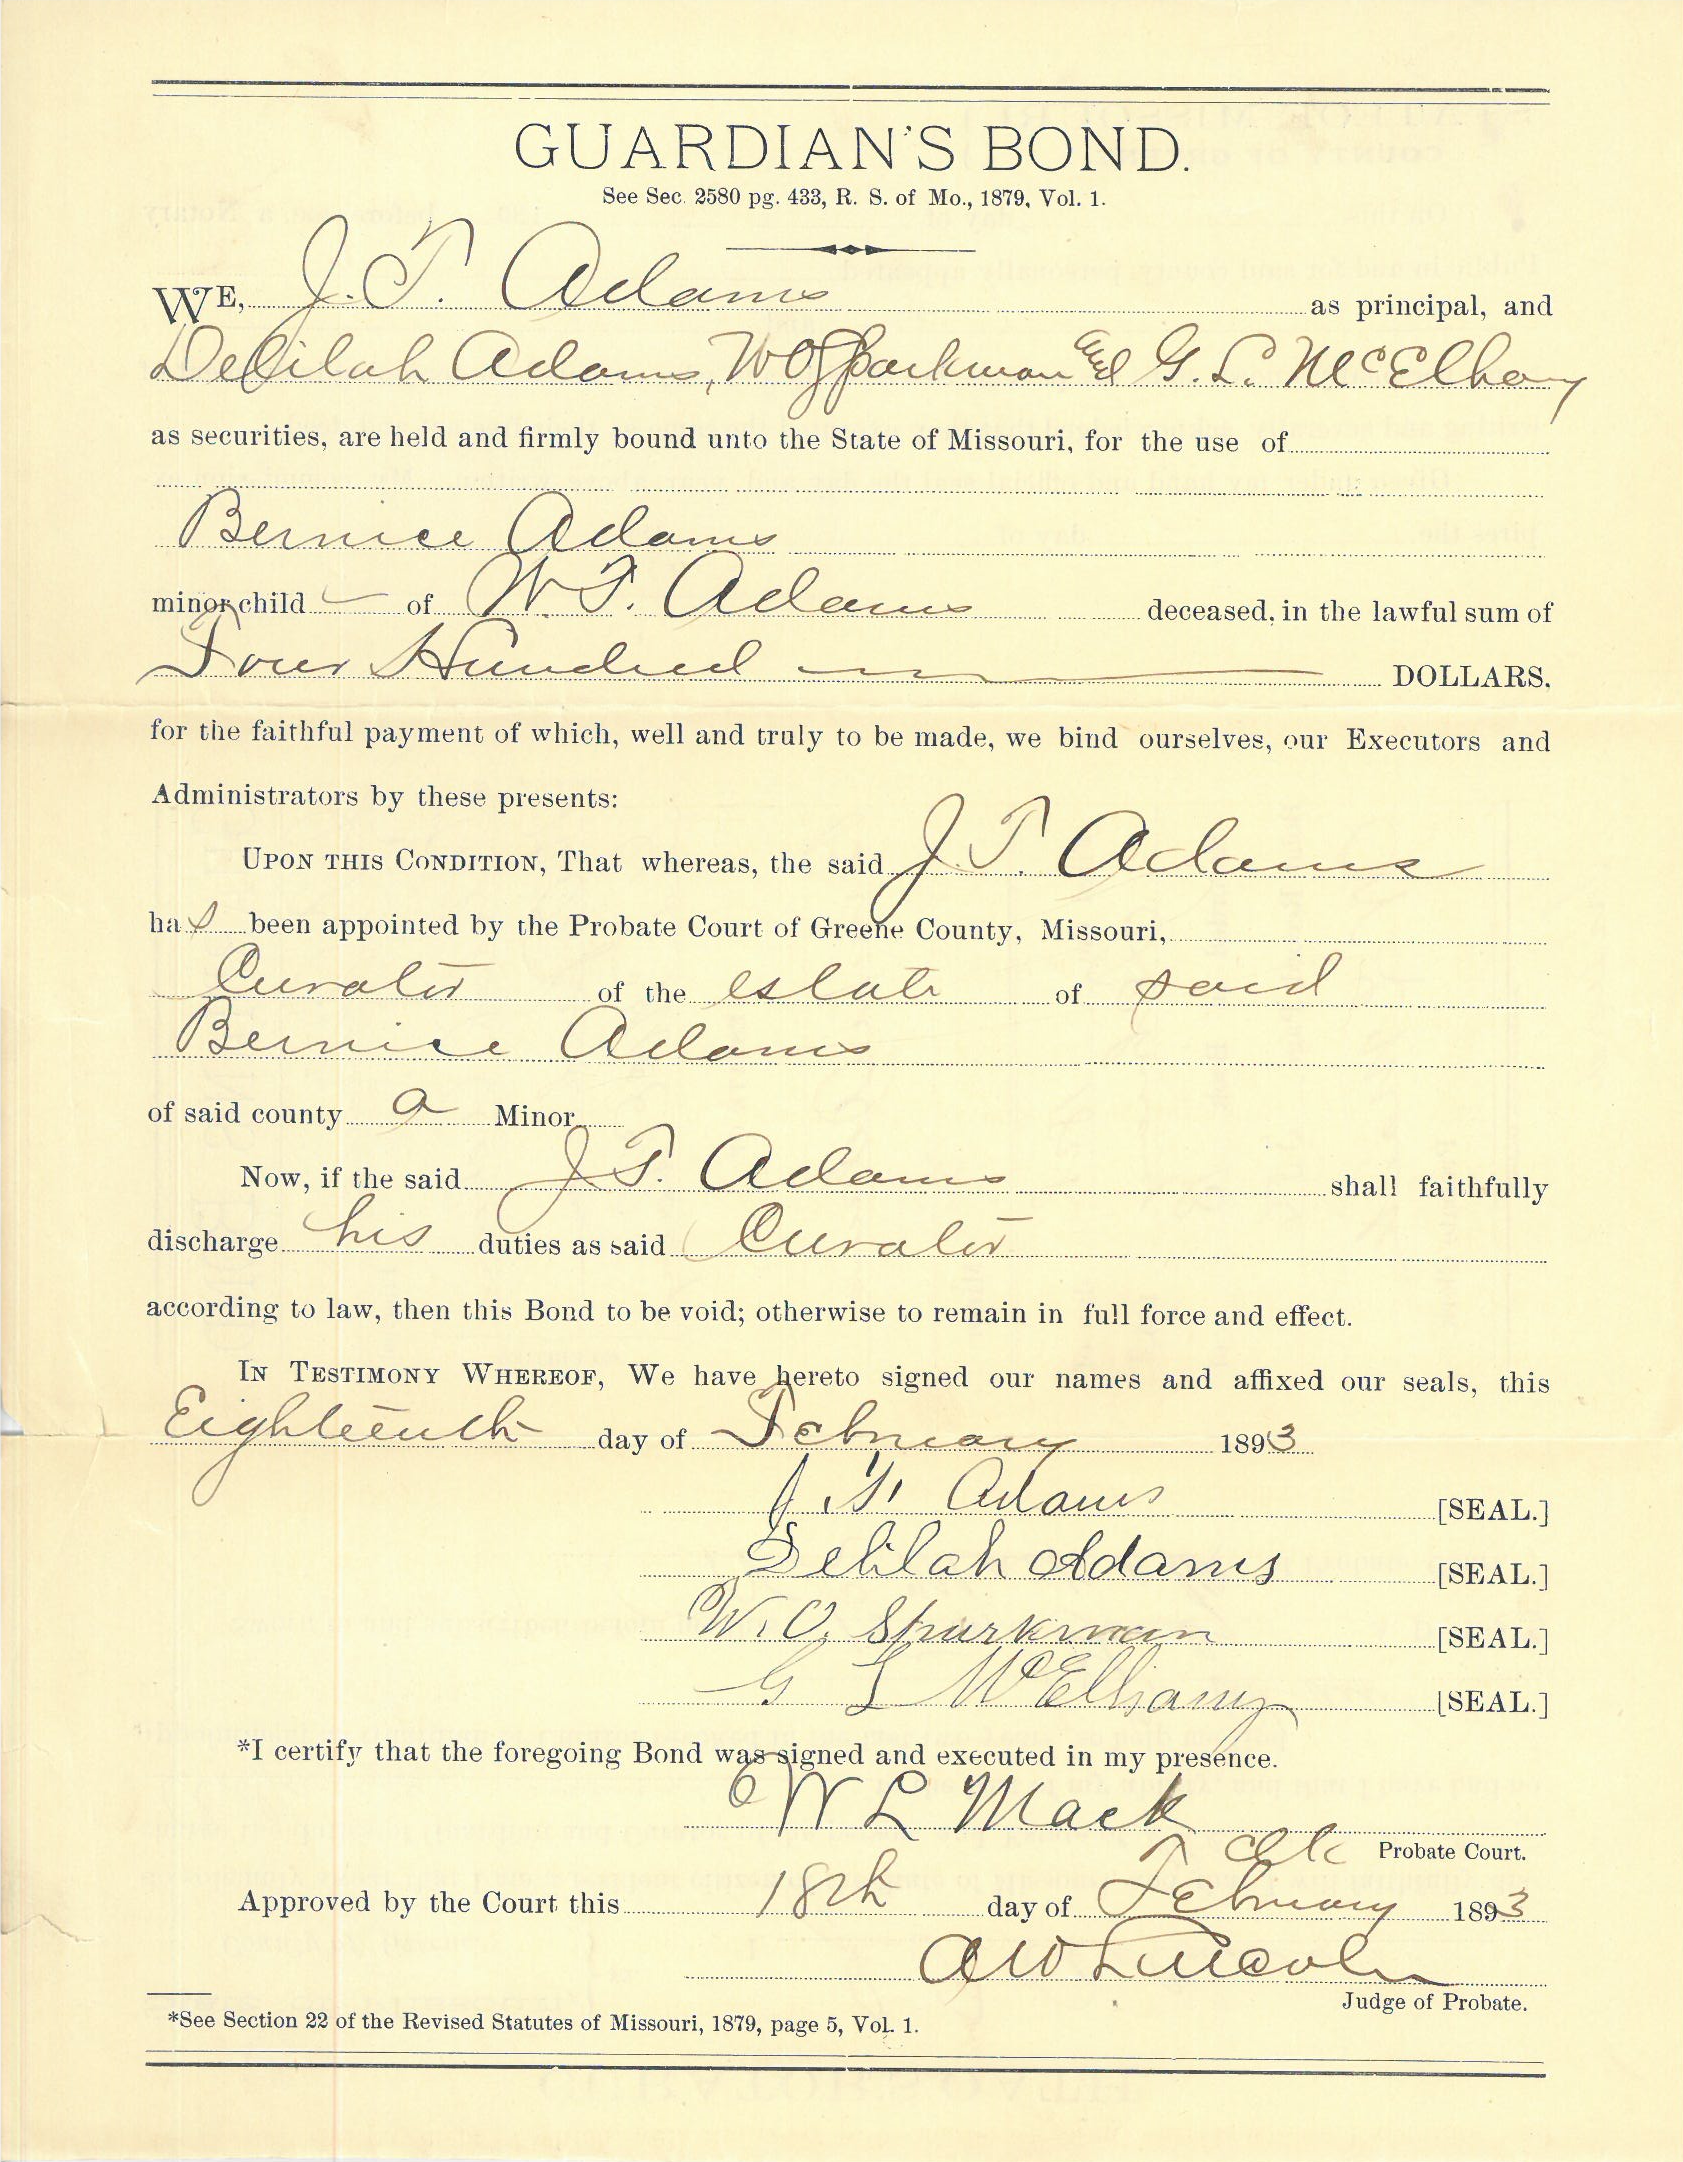 GUARDIAN'S BOND.
See Sec. 2580 pg. 433, R. S. of Mo., 1879, Vol. 1.
WE, J. T. Adams as principal, and
Delilah Adams, W O Sparkman and G. L. McElhany
as securities, are held and firmly bound unto the State of Missouri, for the use of
Bernice Adams
minor child of W. T. Adams deceased, in the lawful sum of
Four Hundred DOLLARS,
for the faithful payment of which, well and truly to be made, we bind ourselves, our Executors and
Administrators by these presents:
UPON THIS CONDITION, That whereas, the said J. T. Adams
has been appointed by the Probate Court of Greene County, Missouri,
Curator of the estate of said
Bernice Adams
of said county a Minor
Now, if the said J T. Adams shall faithfully
discharge his duties as said Curator
according to law, then this Bond to be void; otherwise to remain in full force and effect.
IN TESTIMONY WHEREOF, We have hereto signed our names and affixed our seals, this
Eighteenth day of February 1893
J. T. Adams [SEAL.]
Delilah Adams [SEAL.]
W. O. Sparkman [SEAL.]
G L McElhany [SEAL.]
*I certify that the foregoing Bond was signed and executed in my presence.
W L Mack
Clk Probate Court.
Approved by the Court this 18th day of February 1893
A W Lincoln
Judge of Probate.
*See Section 22 of the Revised Statutes of Missouri, 1879, page 5, Vol. 1.